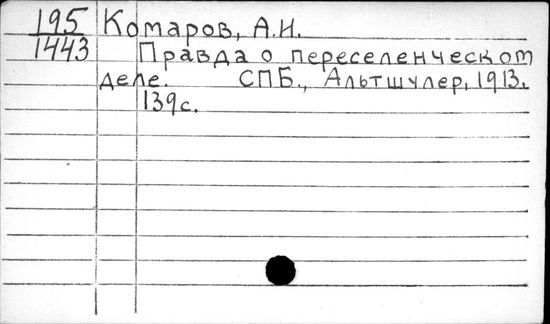 195 Комаров, А.И.
1443 Правда о переселенческом
деле. СПБ., Альтшулер, 1913.
139с.